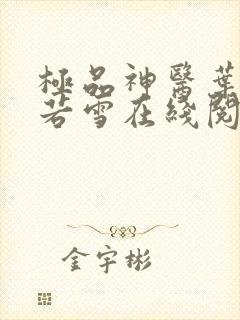 極品神醫葉
若雪在綫閱
金宇彬